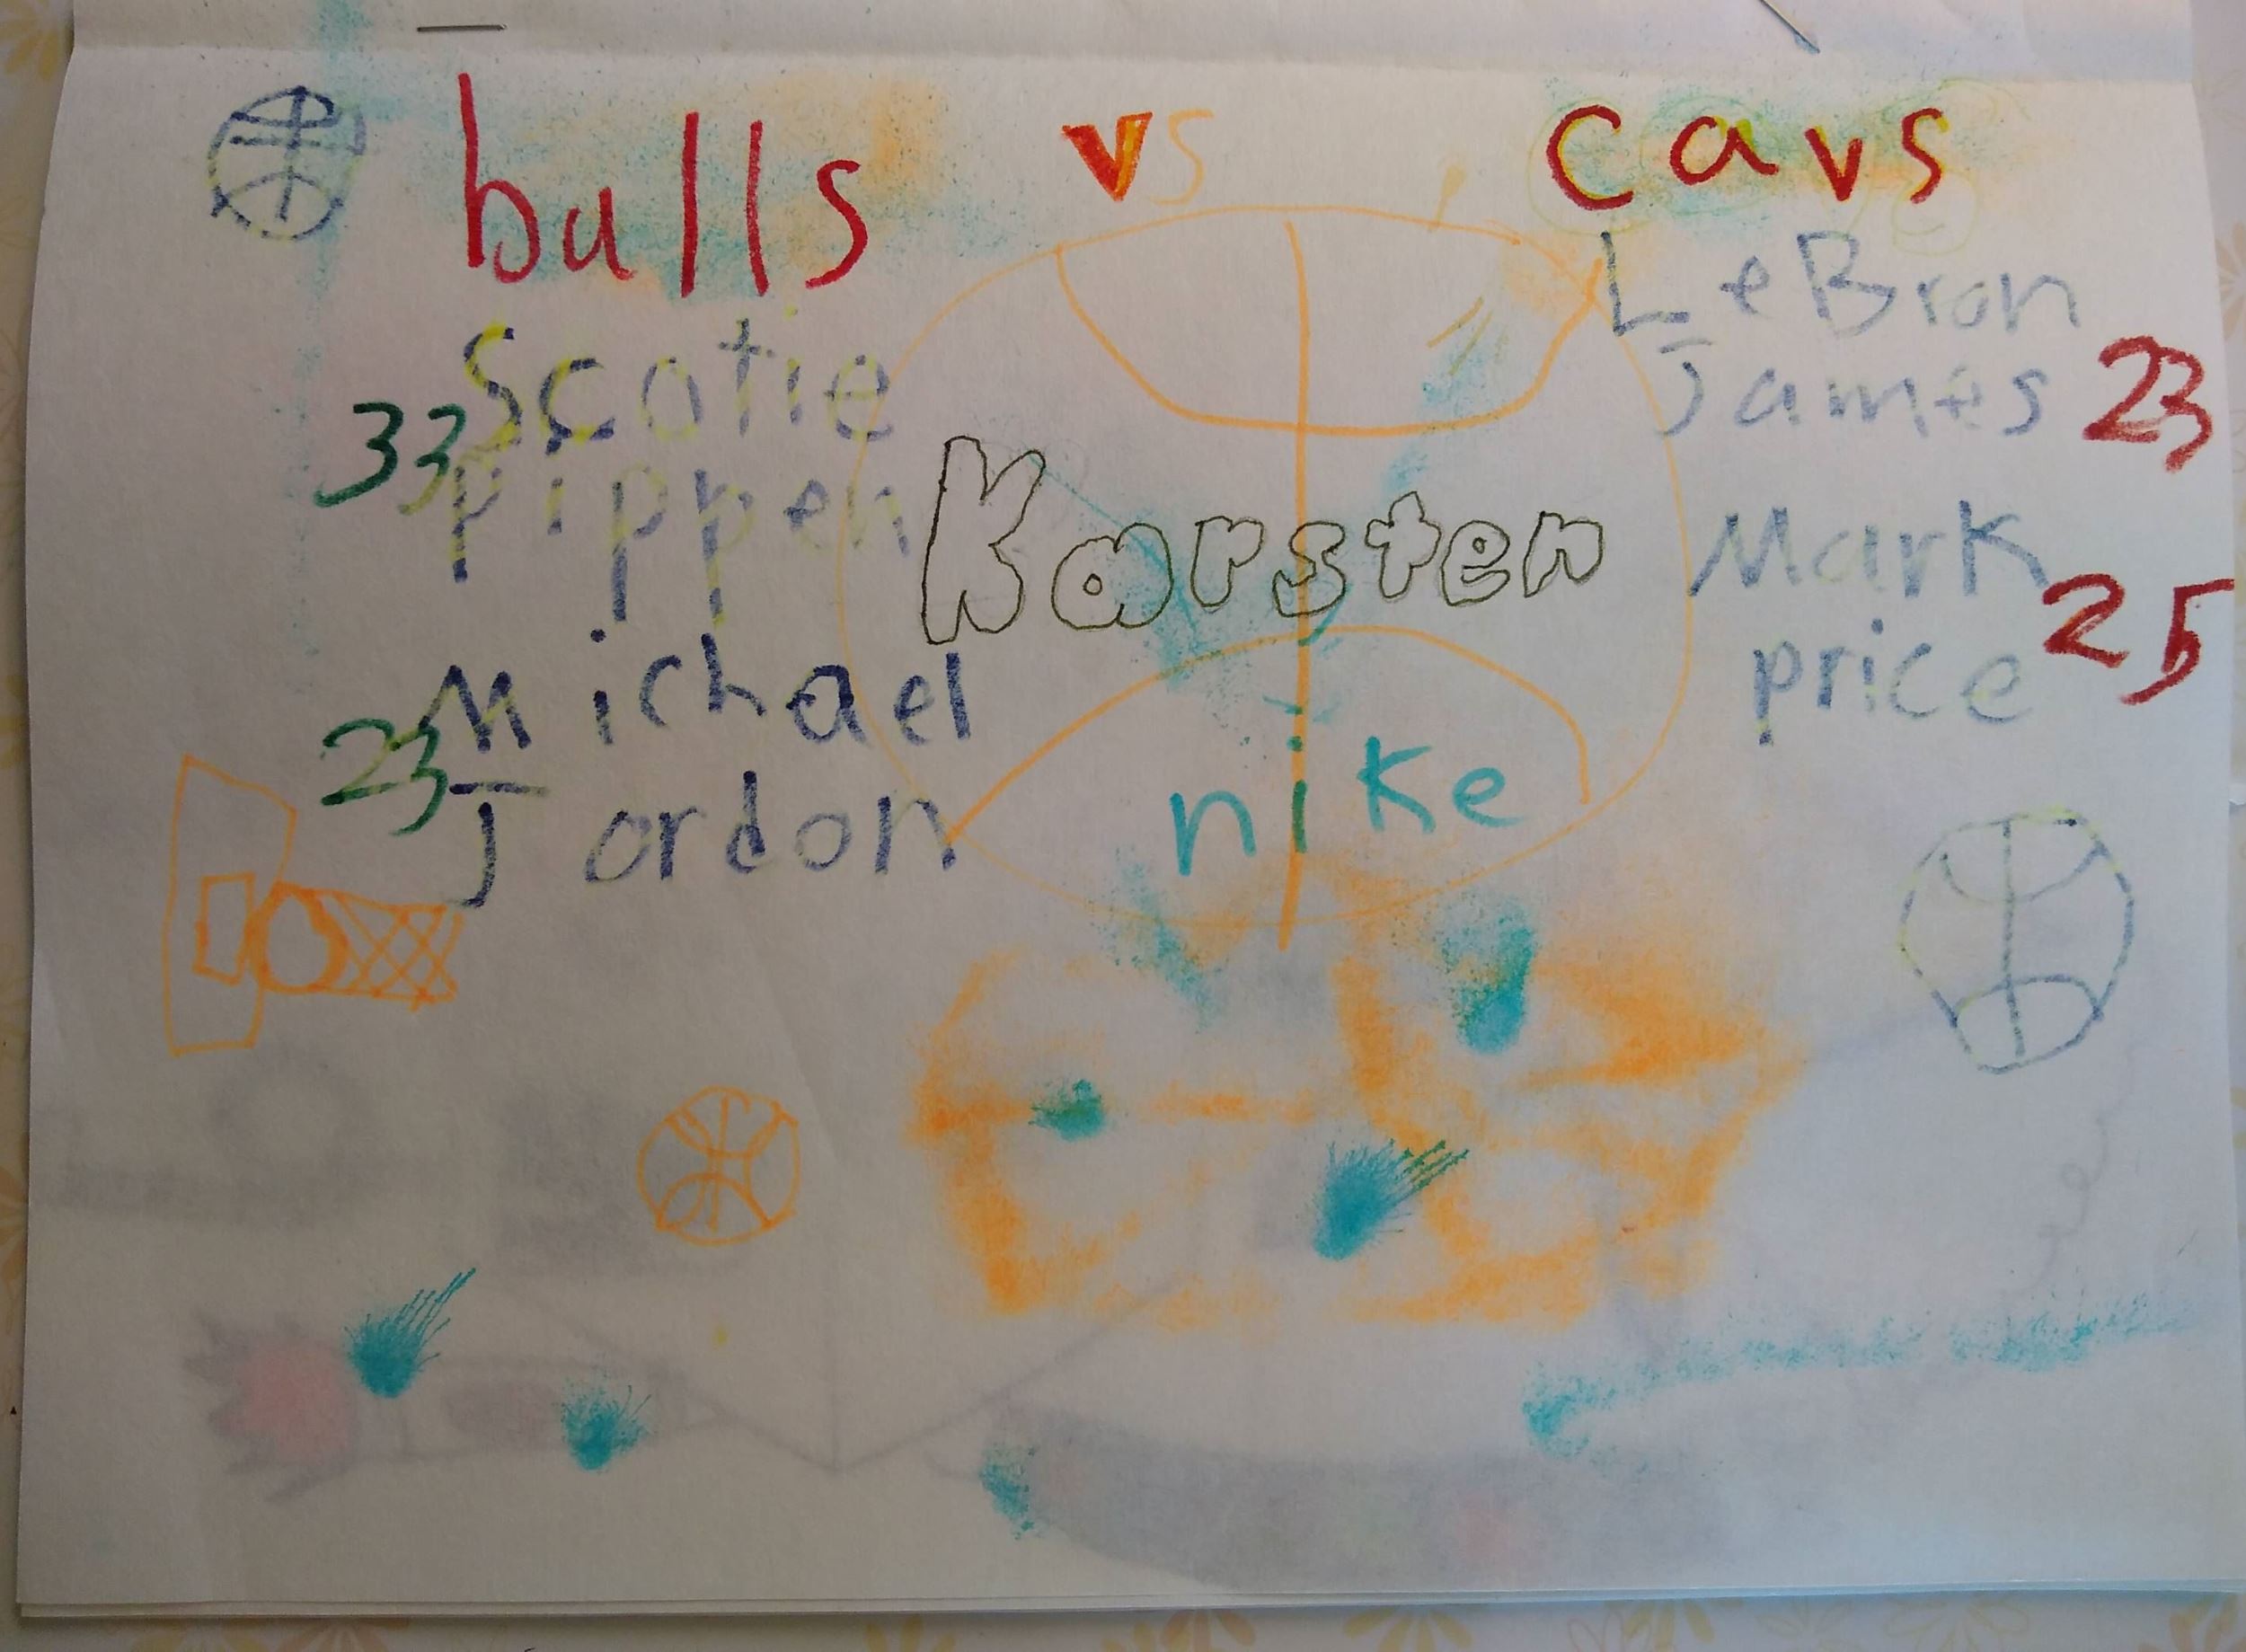 bulls vs cavs
Scotie
33
pippen
Michael
23
Jordon
Karsten
nike
LeBron
James 23
Mark
25
price